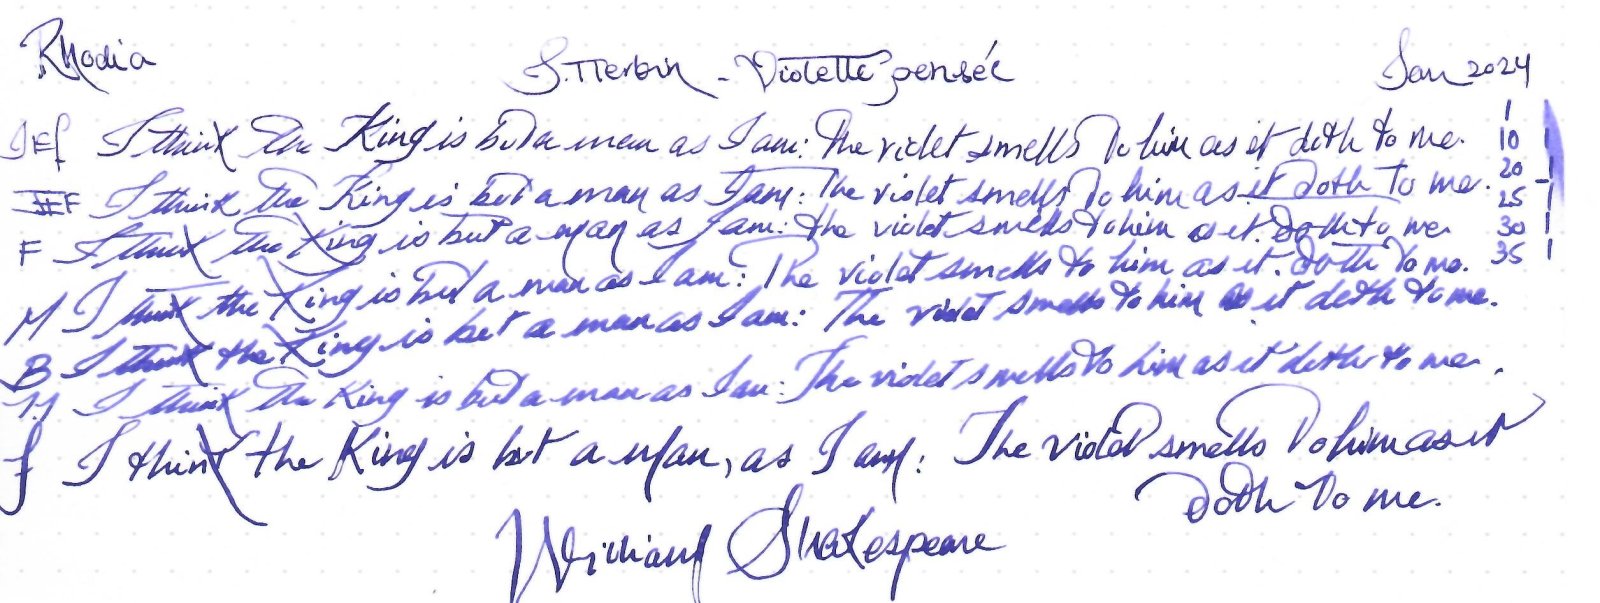 Rhodia J. Herbin - Violette pensée Jan 2024
JEf I think the King is but a man as I am: The violet smells to him as it doth to me.
EF I think the King is but a man as I am: The violet smells to him as it doth to me.
F I think the King is but a man as I am: the violet smells to him as it doth to me
M I think the King is but a man as I am: The violet smells to him as it doth to me.
B I think the King is but a man as I am: The violet smells to him as it doth to me.
M I think the King is but a man as I am: The violet smells to him as it doth to me.
f I think the King is but a man, as I am: The violet smells to him as it
doth to me.
William Shakespeare
1
10
20
25
30
35